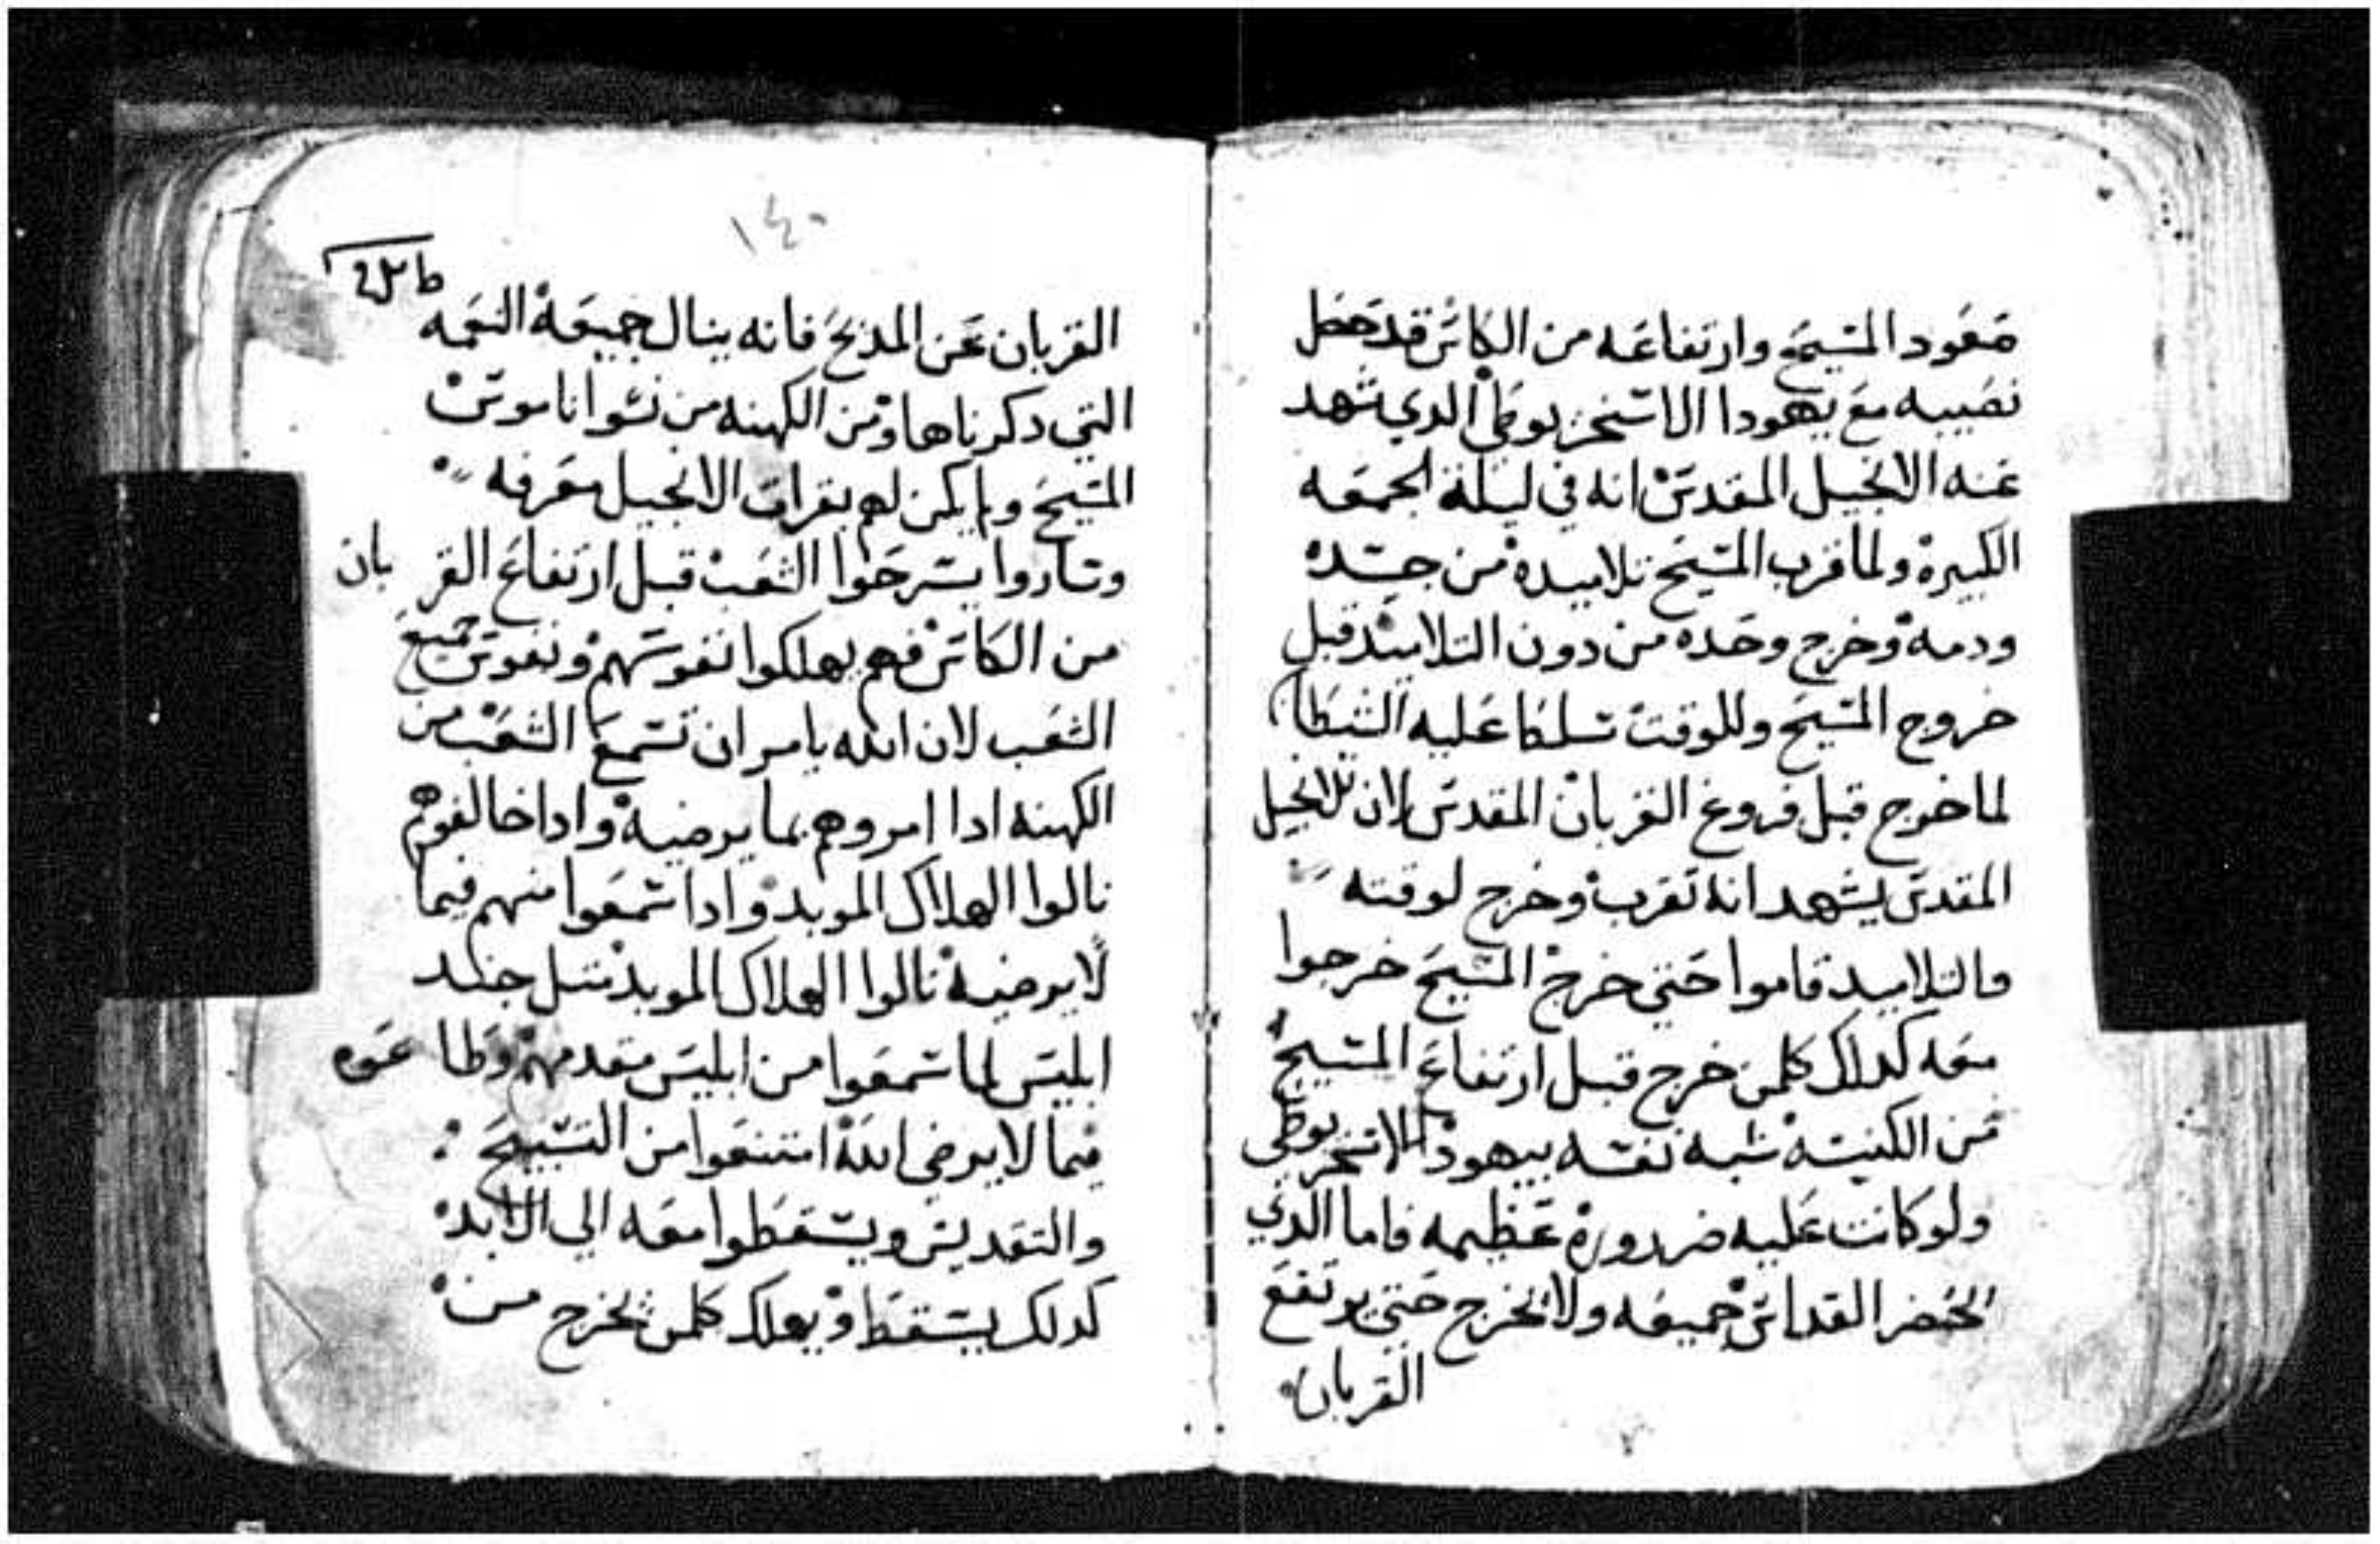 صعود المسيح وارتفاعه من الكاس قد حصل
نصيبه مع يهودا الاسخريوطي الدي شهد
عنه الانجيل المقدس انه في ليلة الجمعه
الكبيرة ولما قرب المسيح تلاميده من جسده
ودمه وخرج وحده من دون التلاميد قبل
خروج المسيح وللوقت تسلط عليه الشيطان
لما خرج قبل فروغ القربان المقدس لان الانجيل
المقدس يشهد انه تقرب وخرج لوقته
والتلاميد قاموا حتي خرج المسيح خرجوا
معه كدلك كلمن خرج قبل ارتفاع المسيح
من الكنيسه شبه نفسه بيهودا الاسخريوطي
ولو كانت عليه ضرورة عظيمه فاما الدي
يحضر القداس جميعه ولا يخرج حتي يرتفع
القربان
١٤٠
القربان عن المدبح فانه ينال جميعة النعمه
التي دكرناها ومن الكهنه من نسوا ناموس
المسيح ولم يكن لهم بقراة الانجيل معرفه
وصاروا يسرحوا الشعب قبل ارتفاع القربان
من الكاس فهم يهلكوا نفوسهم ونفوس جميع
الشعب لان الله يامر ان تسمع الشعب من
الكهنه ادا امروهم بما يرضيه وادا خالفوهم
نالوا الهلاك الموبد وادا سمعوا منهم فيما
لا يرضيه نالوا الهلاك الموبد متل جند
ابليس لما سمعوا من ابليس مقدمهم وطاعوه
فيما لا يرضي الله امتنعوا من التسبيح
والتقديس ويسقطوا معه الي الابد
كدلك يسقط ويهلك كلمن يخرج من